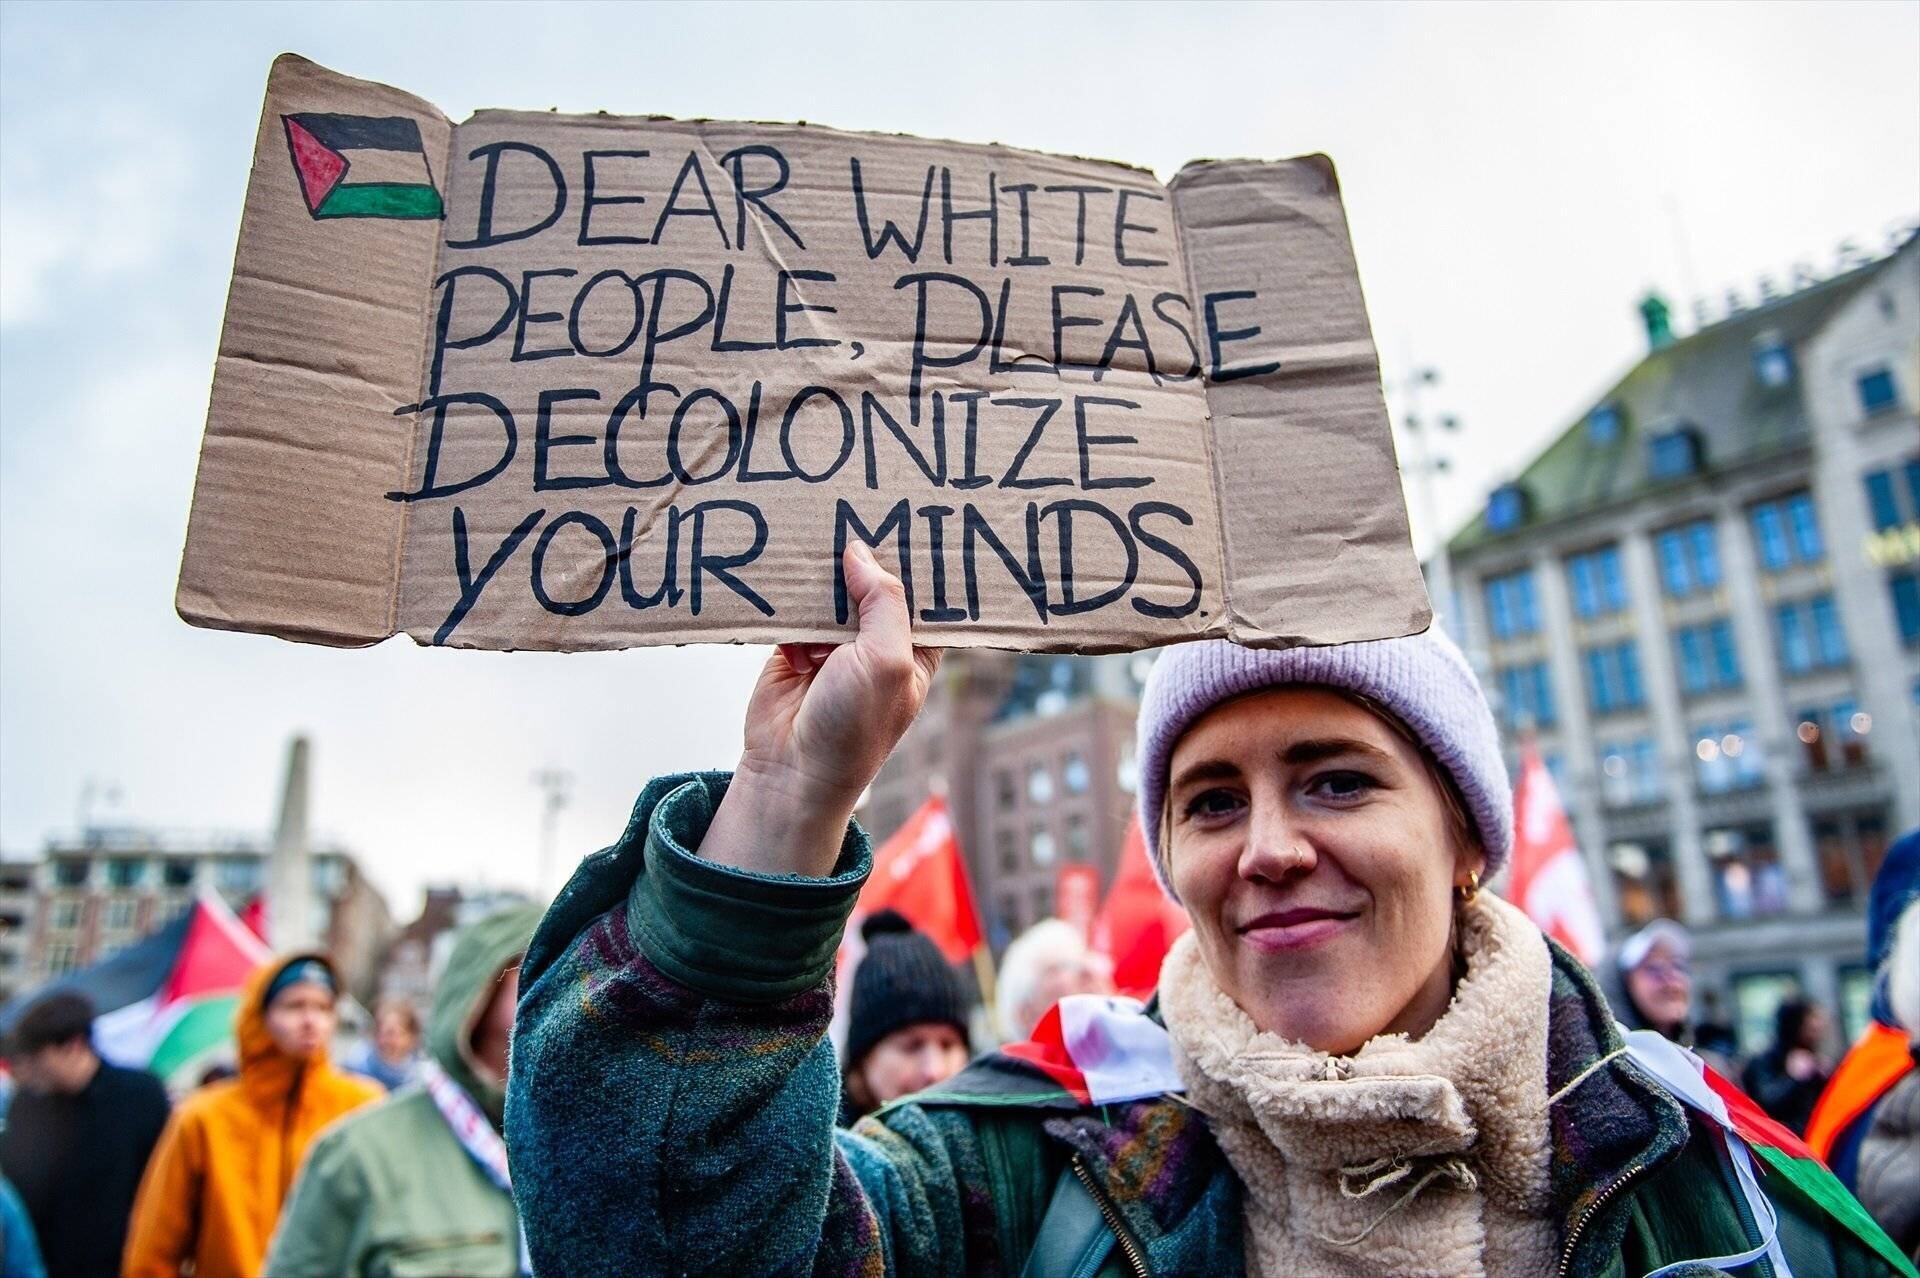 DEAR WHITE
PEOPLE, PLEASE
DECOLONIZE
YOUR MINDS.